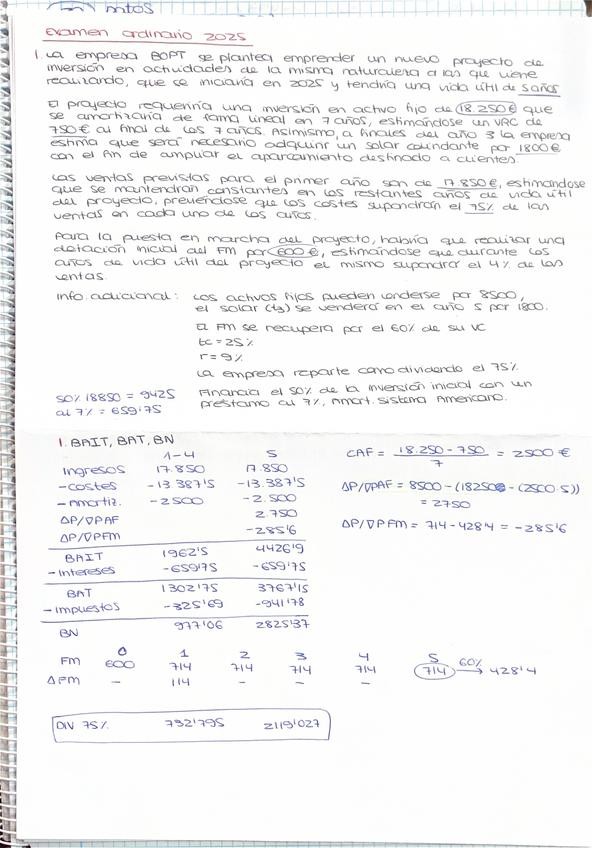 Examen ordinario 2025
1. La empresa BOPT se plantea emprender un nuevo proyecto de
inversión en actividades de la misma naturaleza a las que viene
realizando, que se iniciaría en 2025 y tendría una vida útil de 5 años
El proyecto requeriría una inversión en activo fijo de 18.250€ que
se amortizaría de forma lineal en 7 años, estimándose un VRC de
750€ al final de los 7 años. Asimismo, a finales del año 3 la empresa
estima que será necesario adquirir un solar colindante por 1800€
con el fin de ampliar el aparcamiento destinado a clientes.
Las ventas previstas para el primer año son de 17.850€, estimándose
que se mantendrán constantes en los restantes años de vida útil
del proyecto, previéndose que los costes supondrán el 75% de las
ventas en cada uno de los años.
Para la puesta en marcha del proyecto, habría que realizar una
dotación inicial del FM por 600€, estimándose que durante los
años de vida útil del proyecto el mismo supondrá el 4% de las
ventas.
Info. adicional: Los activos fijos pueden venderse por 8500,
el solar (t3) se venderá en el año 5 por 1800.
El FM se recupera por el 60% de su VC
tc = 25%
r = 9%
La empresa reparte como dividendo el 75%
50% 18850 = 9425 Financia el 50% de la inversión inicial con un
al 7% = 659'75 préstamo al 7%, Amort. Sistema Americano.
1. BAIT, BAT, BN
1-4 5 CAF = 18.250 - 750 / 7 = 2500€
Ingresos 17.850 17.850
- Costes -13.387'5 -13.387'5 ΔP/∇PAF = 8500 - (18250 - (2500·5))
- Amortiz. -2500 -2.500 = 2750
ΔP/∇PAF 2.750
ΔP/∇PFM -285'6 ΔP/∇PFM = 714 - 428'4 = -285'6
BAIT 1962'5 4426'9
- Intereses -659'75 -659'75
BAT 1302'75 3767'15
- Impuestos -325'69 -941'78
BN 977'06 2825'37
0 1 2 3 4 5
FM 600 714 714 714 714 714 60% → 428'4
ΔFM - 114 - - -
DIV 75% 732'795 2119'027